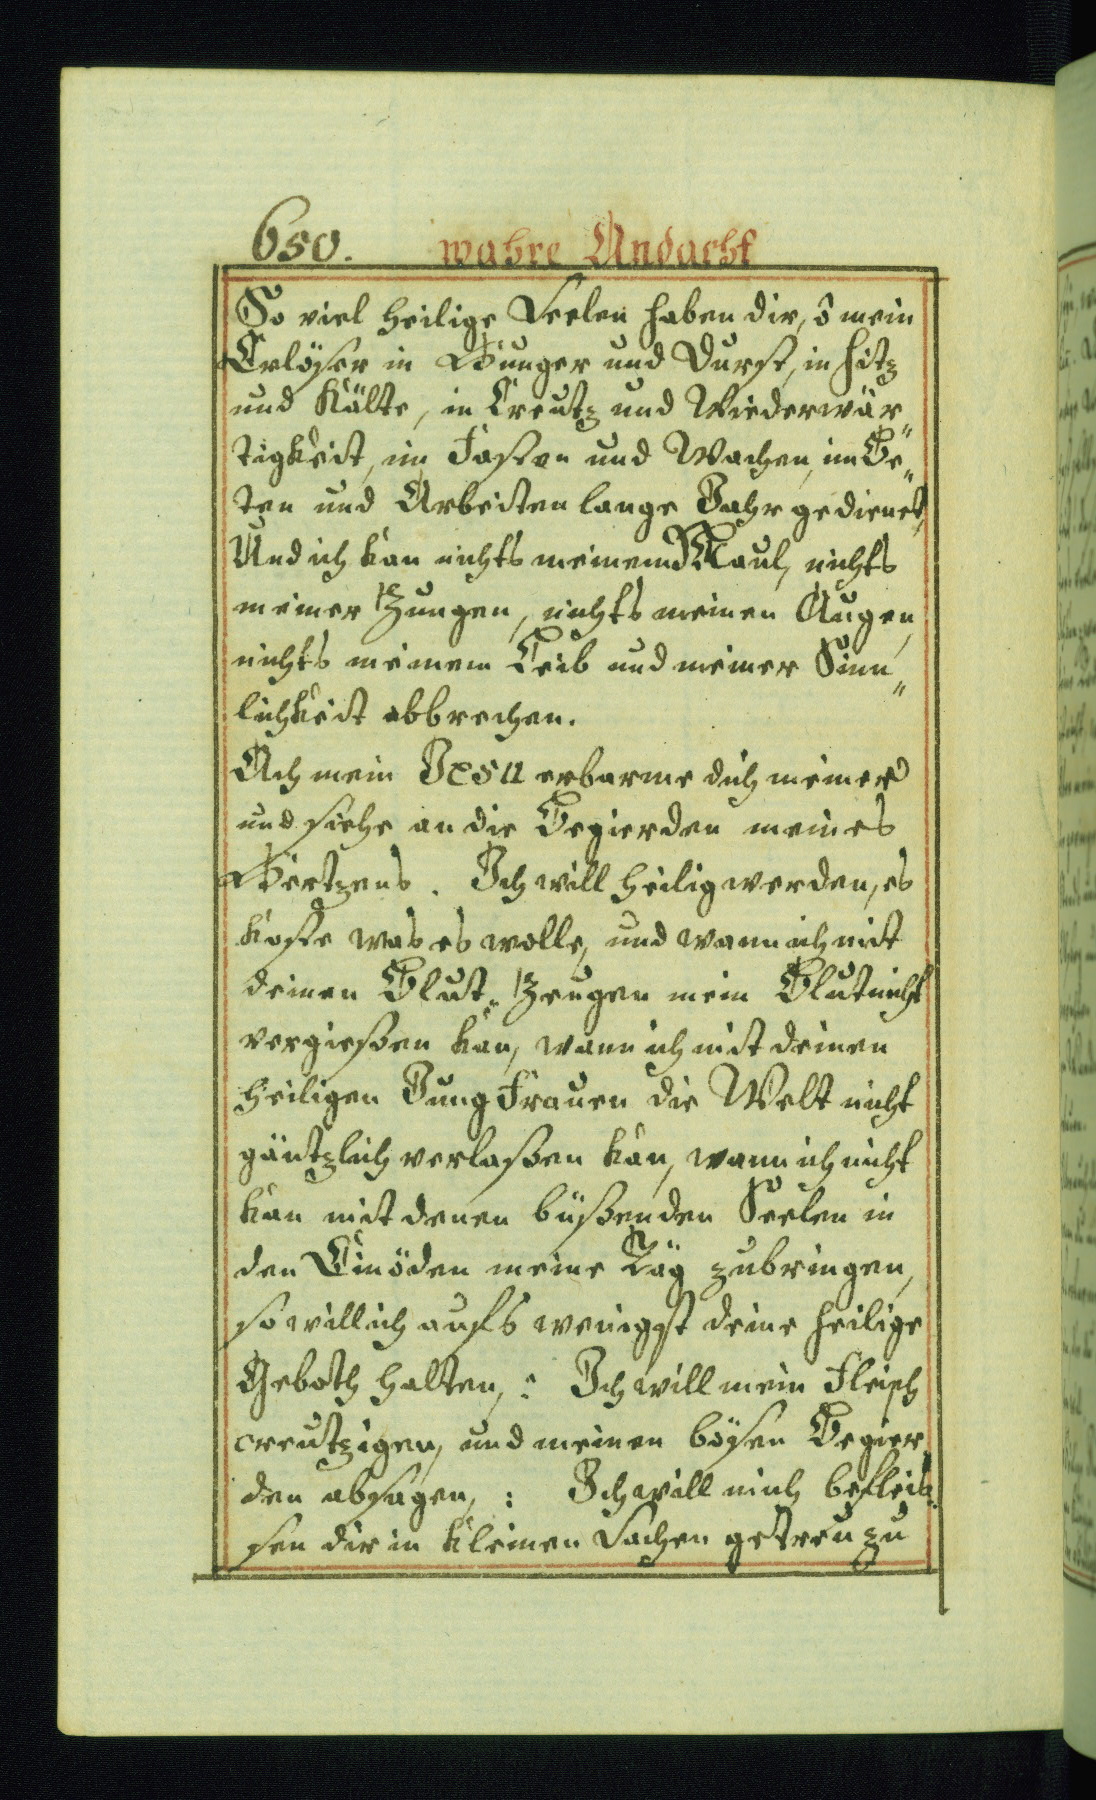 650. wahre Andacht
So viel heilige Seelen haben dir, ô mein
Erlöser in Hunger und Durst, in hitz
und Kälte, in Creutz und Wiederwär„
tigkeit, im Fasten und Wachen, im Be„
ten und Arbeiten lange Jahr gedienet,
Und ich kan nichts meinem Maul, nichts
meiner Zungen, nichts meinen Augen,
nichts meinem Leib und meiner Sinn„
lichkeit abbrechen.
Ach mein JESU erbarme dich meiner
und siehe an die Begierden meines
Hertzens. Ich will heilig werden, es
koste was es wolle, und wann ich mit
deinen Blut„ Zeugen mein Blut nicht
vergießen kan, wann ich mit deinen
heiligen Jungfrauen die Welt nicht
gäntzlich verlaßen kan, wann ich nicht
kan mit denen büßenden Seelen in
den Einöden meine Täg zubringen,
so will ich aufs wenigst deine heilige
Geboth halten,: Ich will mein Fleisch
creutzigen, und meinen bösen Begier„
den absagen,: Ich will mich befleis„
sen dir in kleinen Sachen getreu zu